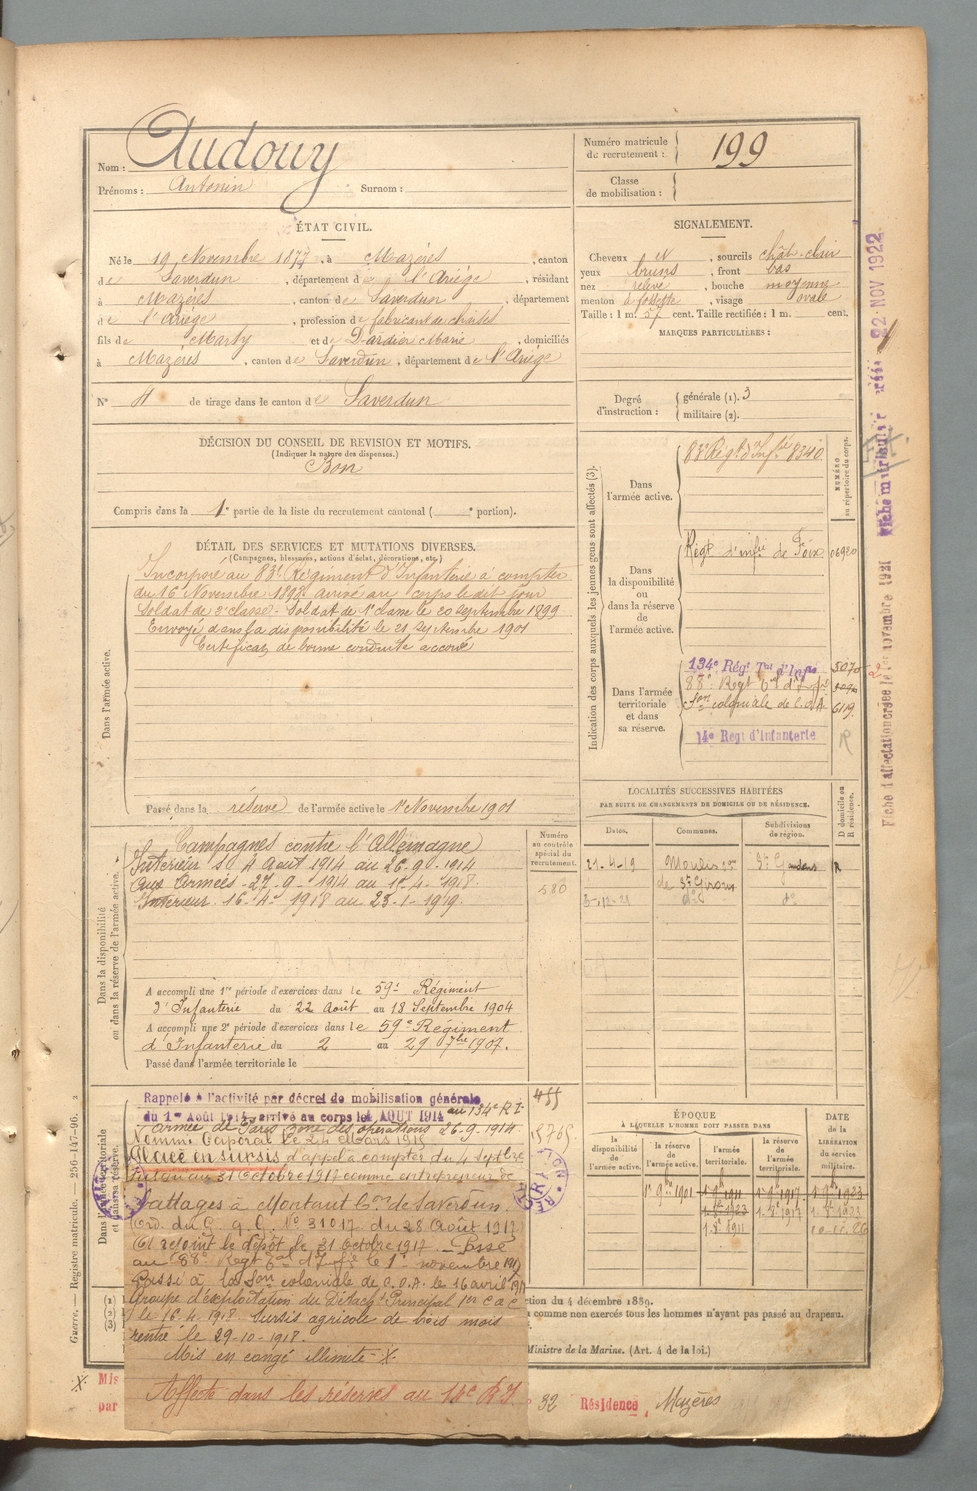 Nom : Audouy
Prénoms : Antonin Surnom :
Numéro matricule du recrutement : 199
Classe de mobilisation :
ÉTAT CIVIL.
Né le 19 Novembre 1877, à Mazères, canton
de Saverdun, département de l'Ariége, résidant
à Mazères, canton de Saverdun, département
de l'Ariége, profession de fabricant de chaises
fils de Marty et de Dardier Marie, domiciliés
à Mazères, canton de Saverdun, département de l'Ariége
N° de tirage dans le canton de Saverdun
SIGNALEMENT.
Cheveux N, sourcils chât. clair
yeux bruns, front bas
nez relevé, bouche moyenne
menton à fossette, visage ovale
Taille : 1 m. 57 cent. Taille rectifiée : 1 m. cent.
MARQUES PARTICULIÈRES :
Degré d'instruction : générale (1). 3
militaire (2).
DÉCISION DU CONSEIL DE REVISION ET MOTIFS.
(Indiquer la nature des dispenses.)
Bon
Compris dans la 1e partie de la liste du recrutement cantonal ( e portion).
DÉTAIL DES SERVICES ET MUTATIONS DIVERSES.
(Campagnes, blessures, actions d'éclat, décorations, etc.)
Dans l'armée active.
Incorporé au 83e Régiment d'Infanterie à compter
du 16 Novembre 1898 arrivé au corps le dit jour
Soldat de 2e classe. Soldat de 1e classe le 20 septembre 1899
Envoyé dans la disponibilité le 21 septembre 1901
Certificat de bonne conduite accordé
Passé dans la réserve de l'armée active le 1er Novembre 1901
Indication des corps auxquels les jeunes gens sont affectés (3).
NUMÉRO au répertoire du corps.
Dans l'armée active.
83e Régt d'Infrie 8340
Dans la disponibilité ou dans la réserve de l'armée active.
Régt d'infie de Foix 06920
Dans l'armée territoriale et dans sa réserve.
134e Régt Tal d'Infie 5070
88e Regt Tal d'Infie
Son coloniale de C.O.A. 6119.
14e Regt d'Infanterie R
22 NOV 1922
Fiche matriculaire
Fiche d'affectation versée le 1er novembre 1921
Dans la disponibilité ou dans la réserve de l'armée active.
Numéro au contrôle spécial du recrutement.
580
Campagnes contre l'Allemagne
Intérieur du 4 Août 1914 au 26.9.1914
Aux Armées - 27-9-1914 au 15-4-1918.
Intérieur 16-4-1918 au 23-1-1919.
A accompli une 1re période d'exercices dans le 59e Régiment
d'Infanterie du 22 Août au 18 Septembre 1904
A accompli une 2e période d'exercices dans le 59e Régiment
d'Infanterie du 2 au 29 7bre 1907.
Passé dans l'armée territoriale le
LOCALITÉS SUCCESSIVES HABITÉES
PAR SUITE DE CHANGEMENTS DE DOMICILE OU DE RÉSIDENCE.
Dates. Communes. Subdivisions de région. D domicile ou R résidence.
21-4-19 Moulis con de St Girons St Gaudens R
5-12-21 do do
Dans l'armée territoriale et dans sa réserve.
Rappelé à l'activité par décret de mobilisation générale
du 1er Août 1914, arrivé au corps le 4 AOUT 1914 au 134e R.I.
armée de Paris zone des opérations 26-9-1914.
Nommé Caporal le 24 Mars 1915
Placé en sursis d'appel à compter du 4 septbre
jusqu'au 31 Octobre 1917 comme entrepreneur de
battages à Montaut Con de Saverdun.
Ord. du G. Q. G. N° 31017 du 28 Août 1917
A rejoint le dépôt le 31 Octobre 1917. Passé
au 88e Regt Tal d'Infie le 1er novembre 1917
Passé à la Son coloniale de C.O.A. le 16 avril 1918
Groupe d'exploitation du Détacht Principal
le 16-4-1918 Sursis agricole de trois mois
rentré le 29-10-1918.
Mis en congé illimité X.
Affecté dans les réserves au 14e R.I.
455
ÉPOQUE
À LAQUELLE L'HOMME DOIT PASSER DANS
la disponibilité de l'armée active. la réserve de l'armée active. l'armée territoriale. la réserve de l'armée territoriale. DATE DE LA LIBÉRATION du service militaire.
1er 9bre 1901
ction du 4 décembre 1889.
comme non exercés tous les hommes n'ayant pas passé au drapeau.
Ministre de la Marine. (Art. 4 de la loi.)
Guerre. — Registre matricule. — 256-147-96.
X. Mis
par
32 Résidence, Mazères